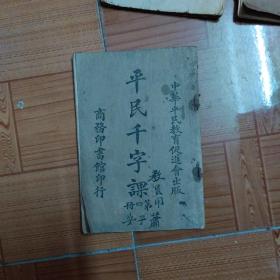 中華平民教育促進會出版
平民千字課
教員用
第四冊
商務印書館印行